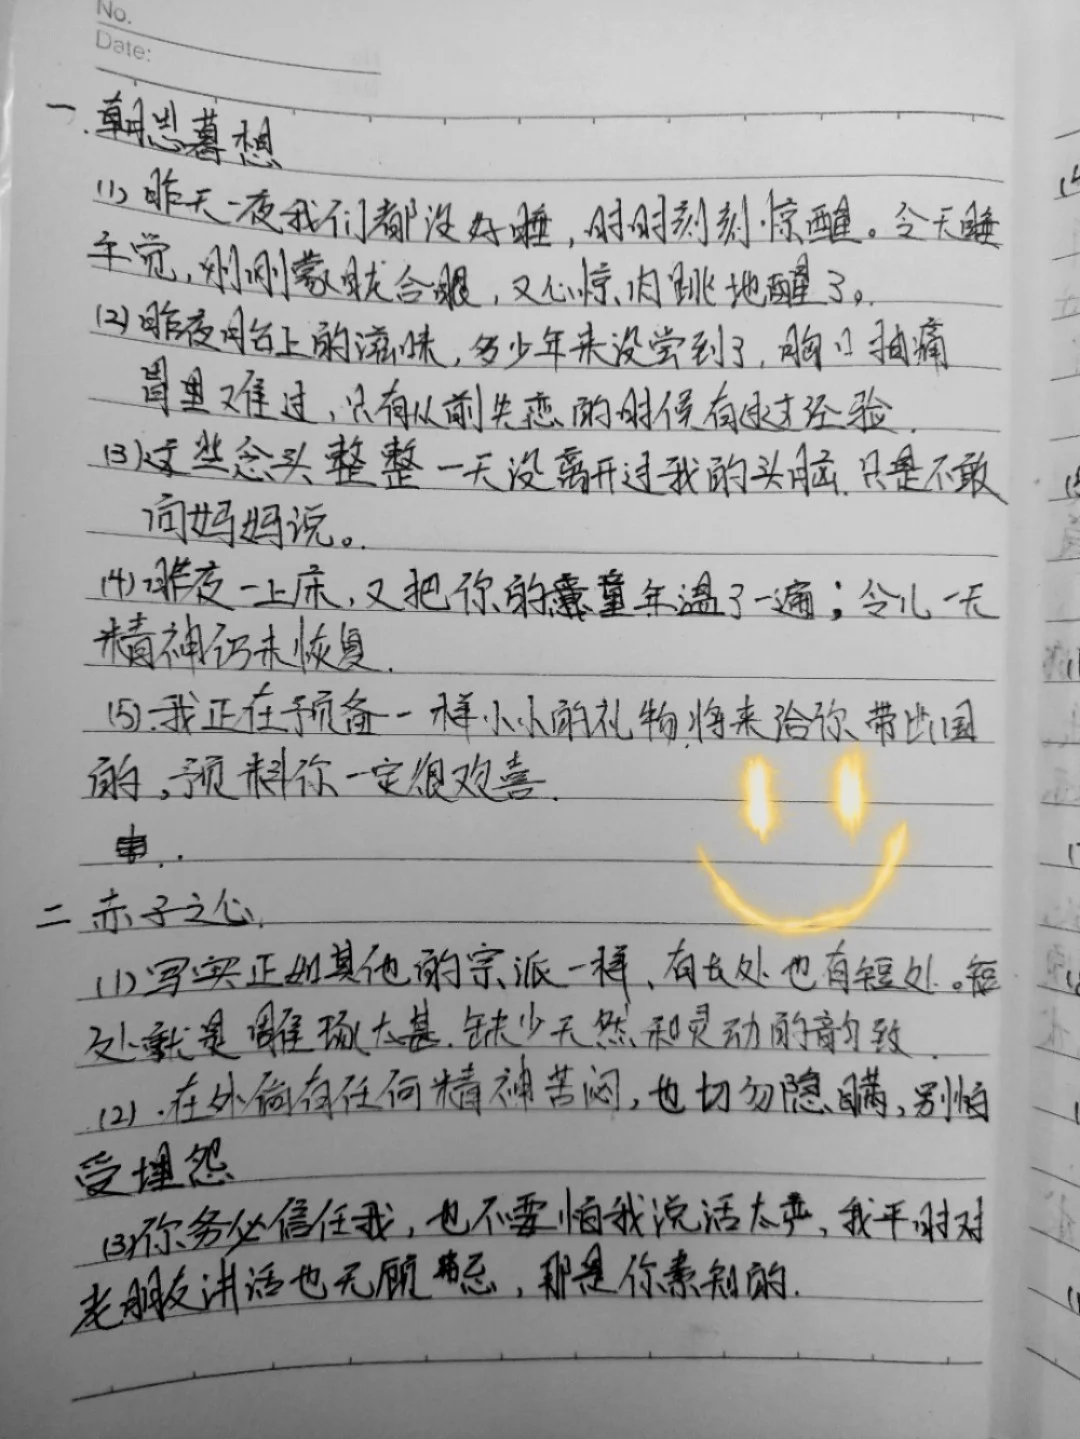 No.
Date:
一.朝思暮想
(1)昨天一夜我们都没好睡,时时刻刻惊醒。今天睡
午觉,刚刚蒙眬合眼,又心惊肉跳地醒了。
(2)昨夜月台上的滋味,多少年来没尝到了,胸口抽痛
胃里难过,只有从前失恋的时候有过这经验.
(3)这些念头整整一天没离开过我的头脑.只是不敢
向妈妈说。
(4)昨夜一上床,又把你的童年温了一遍;今儿一天
精神仍未恢复.
(5)我正在预备一样小小的礼物,将来给你带出国
的,预料你一定很欢喜.
二 赤子之心.
(1)写实正如其他的宗派一样、有长处也有短处。短
处就是雕琢太甚.缺少天然和灵动的韵致.
(2).在外倘有任何精神苦闷,也切勿隐瞒,别怕
受埋怨
(3)你务必信任我,也不要怕我说话太严,我平时对
老朋友讲话也无顾忌,那是你素知的.